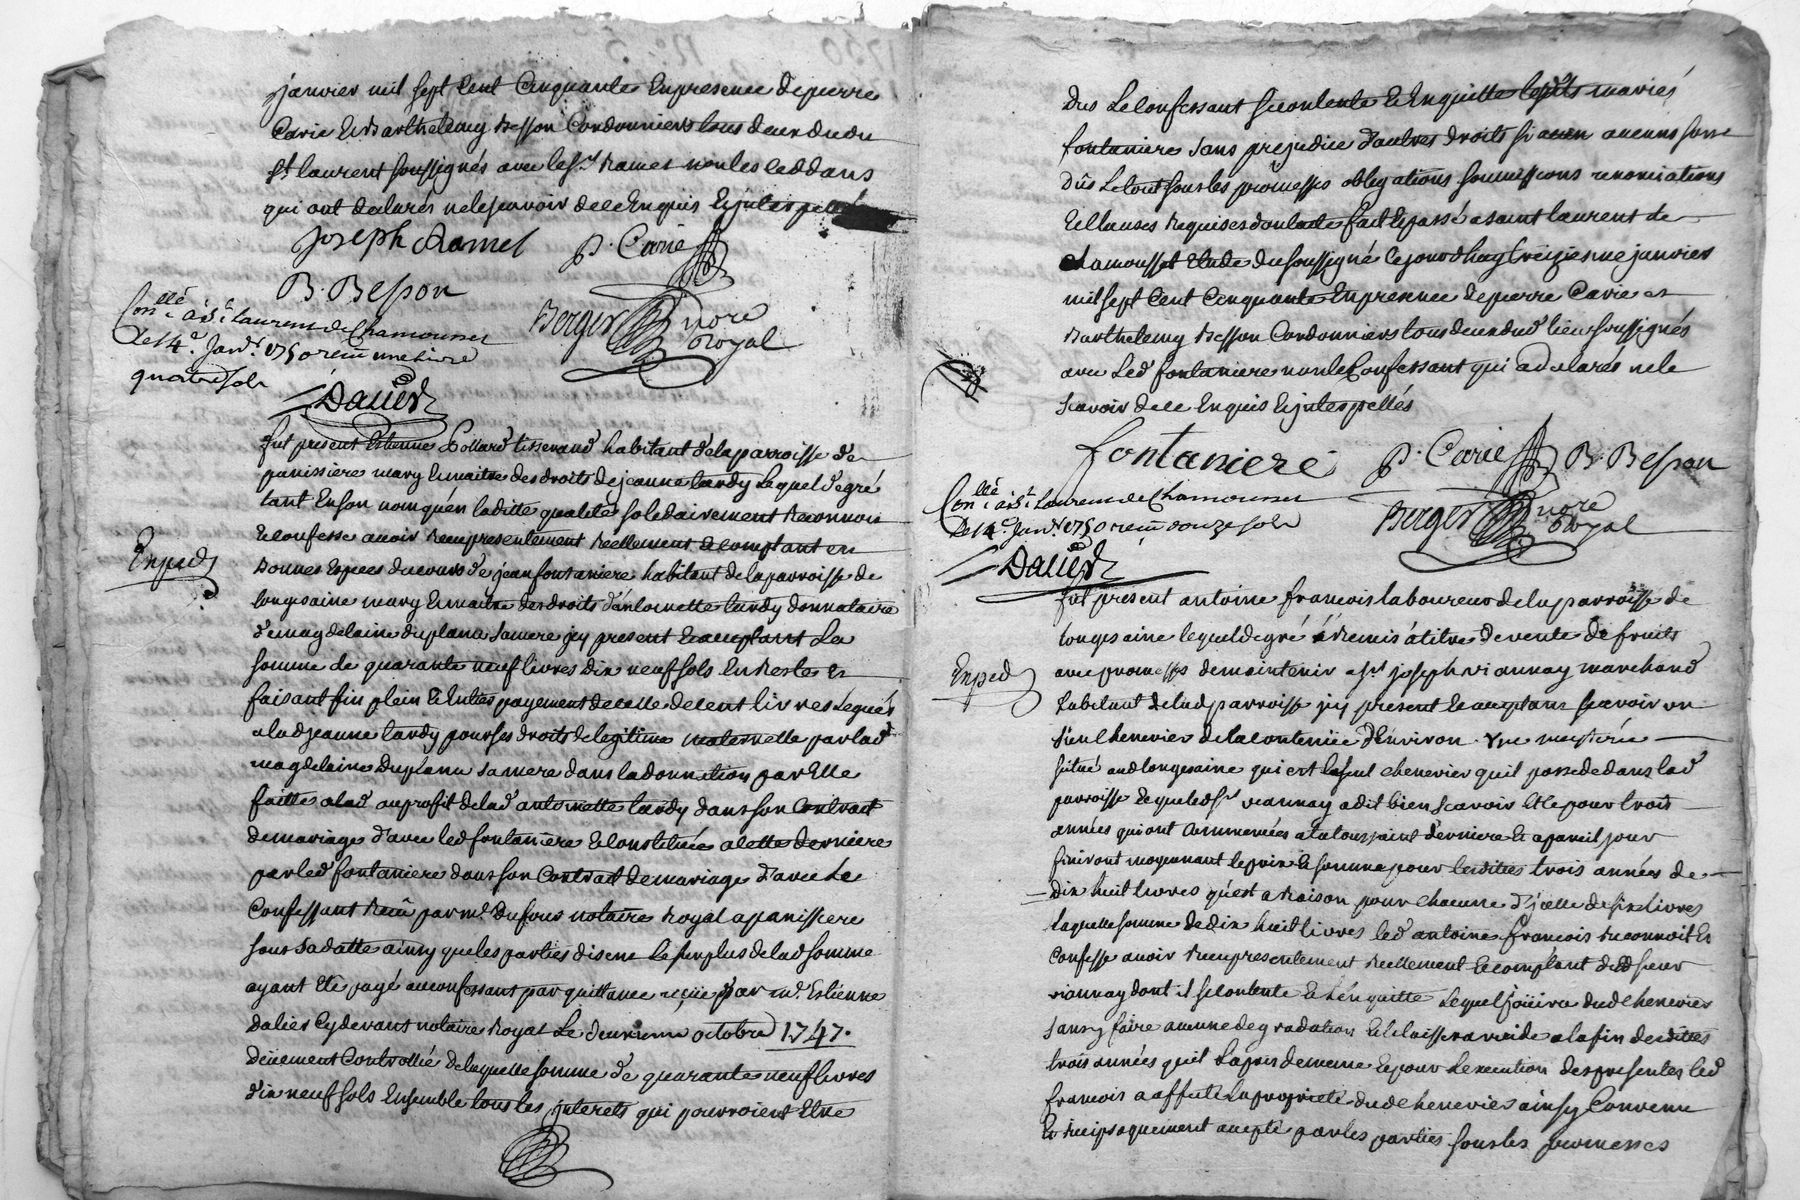 janvier mil sept cent cinquante en presence de pierre
Carie et Barthelemy Besson Cordonniers tous deux dudu
St laurent soussignés avec le sr. Ramel non les led dans
qui ont declarés ne le scavoir de ce enquis et interpellé
Joseph Ramel P. Carie
B. Besson
Berger nore Royal
Conllé à St Laurens de Chamousset
Le 14e. Janvr. 1750 reçu une livre
quatre sols
Dalier
fut present Estienne Collard tisserand habitant de la parroisse de
panissiere mary et maitre des droits de jeanne tardy Lequel de gré
tant en son nom qu'en laditte qualité solidairement Reconnoit
et confesse avoir Reçu presentement Réellement et comptant en
Exped
bonnes Especes du cours de jean fontaniere habitant de la parroisse de
longesaine mary et maitre des droits d'antoinette tardy donnataire
de magdelaine duplanu sa mere jcy present et acceptant La
somme de quarante neuf livres dix neuf sols en Reste et
faisant fin plain et entier payement de celle de cent livres Legués
a lad jeanne tardy pour ses droits de legitime maternelle par lad
magdelaine Duplanu sa mere dans la donnation par Elle
faitte a lad au profit de lad antoinette tardy dans son contract
de mariage d'avec led fontaniere et constituée a cette derniere
par led fontaniere dans son contract de mariage d'avec Le
Confessant Reçû par me. Dufour notaire Royal a panissiere
sous sa datte ainsy que les parties disent Le surplus de lad somme
ayant Eté payé au confessant par quittance reçüe par me. Estienne
dalier cy devant notaire Royal Le deuxieme octobre 1747.
deüement controllée de laquelle somme de quarante neuf livres
dix neuf sols ensemble tous les jnterets qui pouvroient Etre
dus Le confessant se contente et en quitte lesdits mariés
fontaniere sans prejudice d'autres droits si aucuns sont
dûs Le tout sous les promesses obligations soumissions renonciations
et clauses Requises dont acte fait et passé a saint laurent de
chamousset etude du soussigné le jourdhuy treizieme janvier
mil sept cent cinquante en presence de pierre Carie et
Barthelemy Besson Cordonniers tous deux dud lieu soussignés
avec Led fontaniere non le Confessant qui a declaré ne le
scavoir de ce enquis et interpellés
fontaniere P. Carie B. Besson
Berger nore Royal
Conllé à St Laurens de Chamousset
Le 14e. Janvr. 1750 reçu douze sols
Dalier
fut present antoine françois laboureur de la parroisse de
longesaine lequel de gré à Remis a titre de vente de fruits
Exped
avec promesse de maintenir a sr. joseph viannay marchand
habitant de lad parroisse jcy present et acceptant scavoir un
sien chenevier de la contenüe d'environ une meyterée
situé aud longesaine qui est le seul chenevier qu'il possede dans lad
parroisse et que led sr viannay a dit bien scavoir Et ce pour trois
années qui ont commencées a la toussaint derniere et a pareil jour
finiront moyennant le prix et somme pour lesdittes trois années de
dix huit livres qu'est a Raison pour chacune d'jcelle de six livres
laquelle somme de dix huit livres led antoine françois reconnoit et
confesse avoir Reçu presentement reellement et comptant dud sieur
viannay dont il se contente et l'en quitte lequel joüira dud chenevier
sans y faire aucune degradation et le laissera vuide a la fin desdittes
trois années qu'il l'a pris de meme et pour l'execution des presentes led
francois a affecté la proprieté dud chenevier ainsy Convenu
et reciproquement accepté par les parties sous les promesses